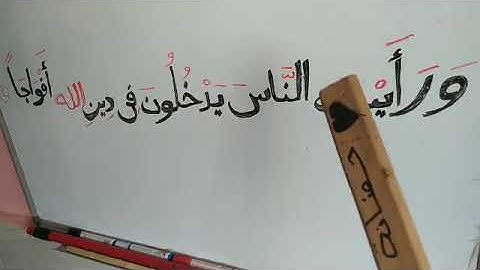 وَرَأَيْ النَّاسَ يَدْخُلُونَ فِى دِينِ الله أَفْوَاجًا